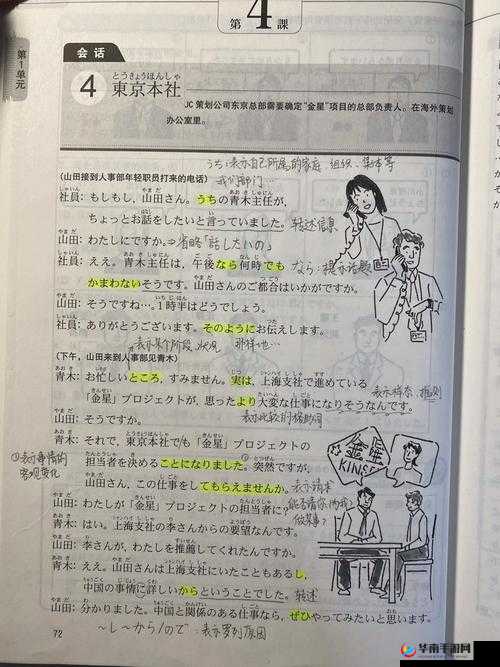 第4課
第1单元
会话
とうきょうほんしゃ
4 東京本社
JC策划公司东京总部需要确定“金星”项目的总部负责人。在海外策划
办公室里。
うち:表示自己所属的家庭 组织、集体等
(山田接到人事部年轻职员打来的电话)
我们部门
社員:もしもし,山田さん。うちの青木主任が,
ちょっとお話をしたいと言っていました。转达信息
山田:わたしにですか。⇒省略「話したいの」
社員:ええ。青木主任は,午後なら何時でも なら:提示话题
かまわないそうです。山田さんのご都合はいかがですか。
山田:そうですね…。1時半はどうでしょう。
社員:ありがとうございます。そのようにお伝えします。
表示某个阶段、状况 那样地…
(下午,山田来到人事部见青木)
青木:お忙しいところ,すみません。実は,上海支社で進めている
「金星」プロジェクトが,思ったより大変な仕事になりそうなんです。
表示样态 推测
山田:そうですか。
青木:それで,東京本社でも「金星」プロジェクトの
①表示事情的
客观变化
担当者を決めることになりました。突然ですが,
山田さん,この仕事をしてもらえませんか。表示请求
山田:わたしが「金星」プロジェクトの担当者に?
能否请你(为我)
做某事?
青木:はい。上海支社の李さんからの要望なんです。
山田:李さんが,わたしを推薦してくれたんですか。
青木:ええ。山田さんは上海支社にいたこともあるし,
中国の事情に詳しいからということでした。转述
山田:分かりました。中国と関係のある仕事なら,ぜひやってみたいと思います。
72
~し~から/ので:表示罗列原因
金星
KINSE
华南手游网